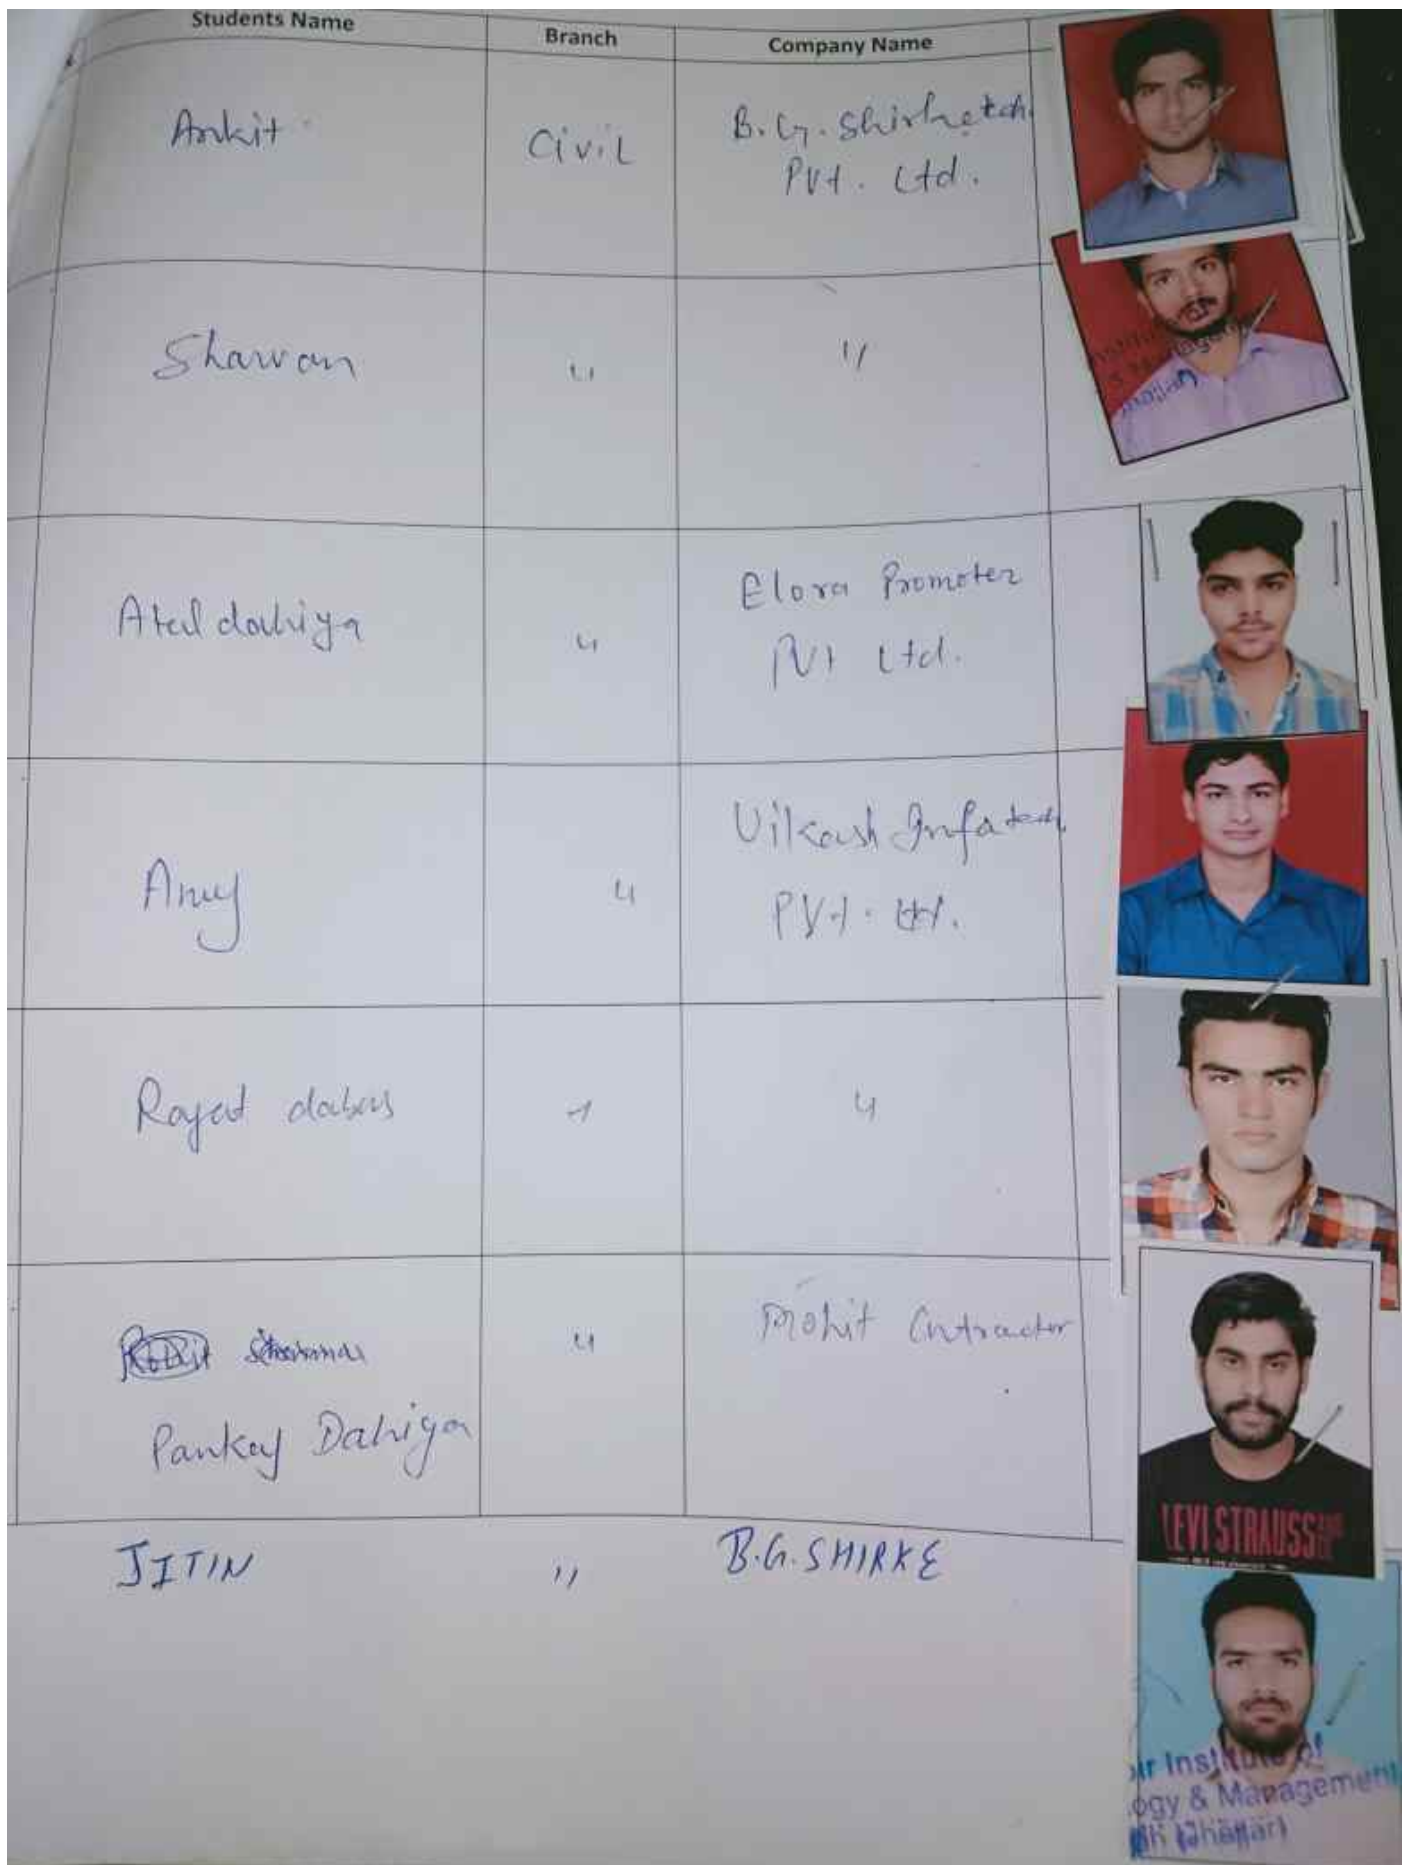 Students Name Branch Company Name
Ankit Civil B.G. Shirke tch.
Pvt. Ltd.
Sharvan " "
Atul dahiya " Elora Promoter
Pvt Ltd.
Anuj " Vikash Infatech
Pvt. Ltd.
Rajat dabas " "
Sharma " Mohit Cntractor
Pankaj Dahiya
JITIN " B.G. SHIRKE
LEVI STRAUSS
Institute of
ogy & Management
Jhajjar)